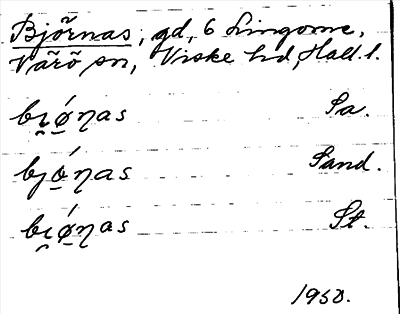 Björnas, gd, 6 Lingome,
Värö sn, Viske hd, Hall. l.
bi̯ó̠ɳas Sa.
bjó̠ɳas Sand.
bi̯ó̠ɳas St.
1950.